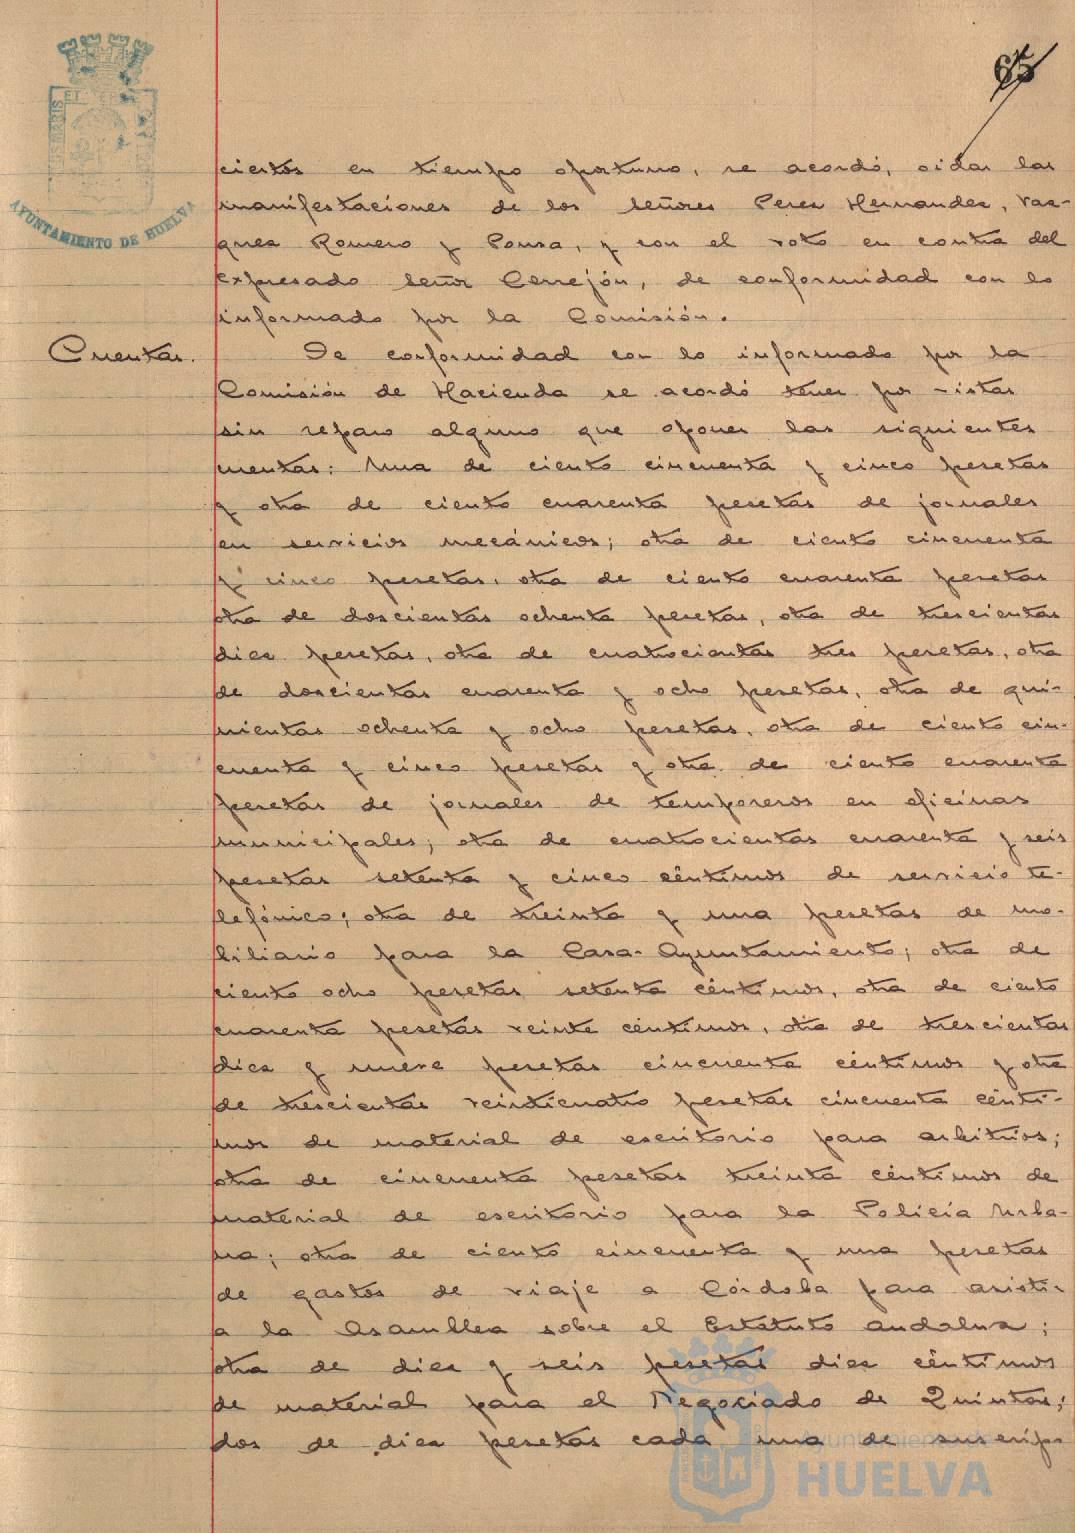 65
ciertos en tiempo oportuno, se acordó, oidas las
manifestaciones de los señores Perez Hernandez, Vaz-
quez Romero y Pousa, y con el voto en contra del
expresado señor Cerrejón, de conformidad con lo
informado por la Comisión.
Cuentas. De conformidad con lo informado por la
Comisión de Hacienda se acordó tener por vistas
sin reparo alguno que oponer las siguientes
cuentas: Una de ciento cincuenta y cinco pesetas
y otra de ciento cuarenta pesetas de jornales
en servicios mecánicos; otra de ciento cincuenta
y cinco pesetas, otra de ciento cuarenta pesetas
otra de doscientas ochenta pesetas, otra de trescientas
diez pesetas, otra de cuatrocientas tres pesetas, otra
de doscientas cuarenta y ocho pesetas, otra de qui-
nientas ochenta y ocho pesetas, otra de ciento cin-
cuenta y cinco pesetas y otra de ciento cuarenta
pesetas de jornales de temporeros en oficinas
municipales; otra de cuatrocientas cuarenta y seis
pesetas setenta y cinco céntimos de servicio te-
lefónico; otra de treinta y una pesetas de mo-
biliario para la Casa-Ayuntamiento; otra de
ciento ocho pesetas setenta céntimos, otra de ciento
cuarenta pesetas veinte céntimos, otra de trescientas
diez y nueve pesetas cincuenta céntimos y otra
de trescientas veinticuatro pesetas cincuenta cénti-
mos de material de escritorio para arbitrios;
otra de cincuenta pesetas treinta céntimos de
material de escritorio para la Policía Urba-
na; otra de ciento cincuenta y una pesetas
de gastos de viaje a Córdoba para asistir
a la Asamblea sobre el Estatuto andaluz;
otra de diez y seis pesetas diez céntimos
de material para el Negociado de Quintas;
dos de diez pesetas cada una de suscrip-
AYUNTAMIENTO DE HUELVA
Ayuntamiento de
HUELVA